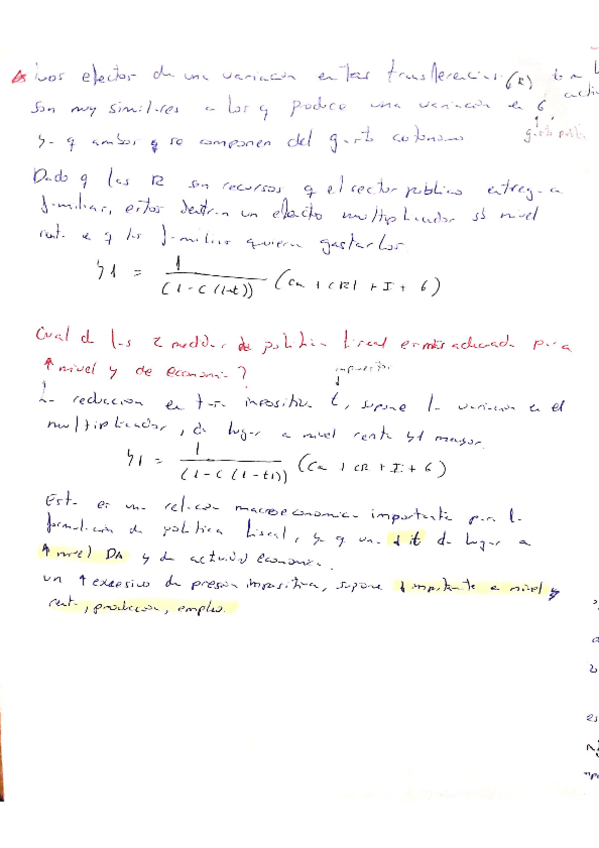 Los efectos de una variación en las transferencias (R)
son muy similares a los q produce una variación en G
ya q ambos q se componen del gasto autónomo
gasto públi
Dado q las R son recursos q el sector público entrega a
familias, estos tendrán un efecto multiplicador s/ nivel
renta q las familias quieran gastarlos
y1 = 1 / (1 - c (1-t)) (Ca + cR1 + I + G)
Cual de las 2 medidas de política fiscal es más adecuada para
↑ nivel y de economía?
impuestos
↓
La reducción en tasa impositiva t, supone la variación en el
multiplicador, da lugar a nivel renta y1 mayor.
y1 = 1 / (1 - c (1 - t1)) (Ca + cR + I + G)
Esta es una relación macroeconómica importante para la
formulación de política fiscal, ya q una ↓ t da lugar a
↑ nivel DA y de actividad económica.
un ↑ excesivo de presión impositiva, supone ↓ importante a nivel y
renta, producción, empleo.